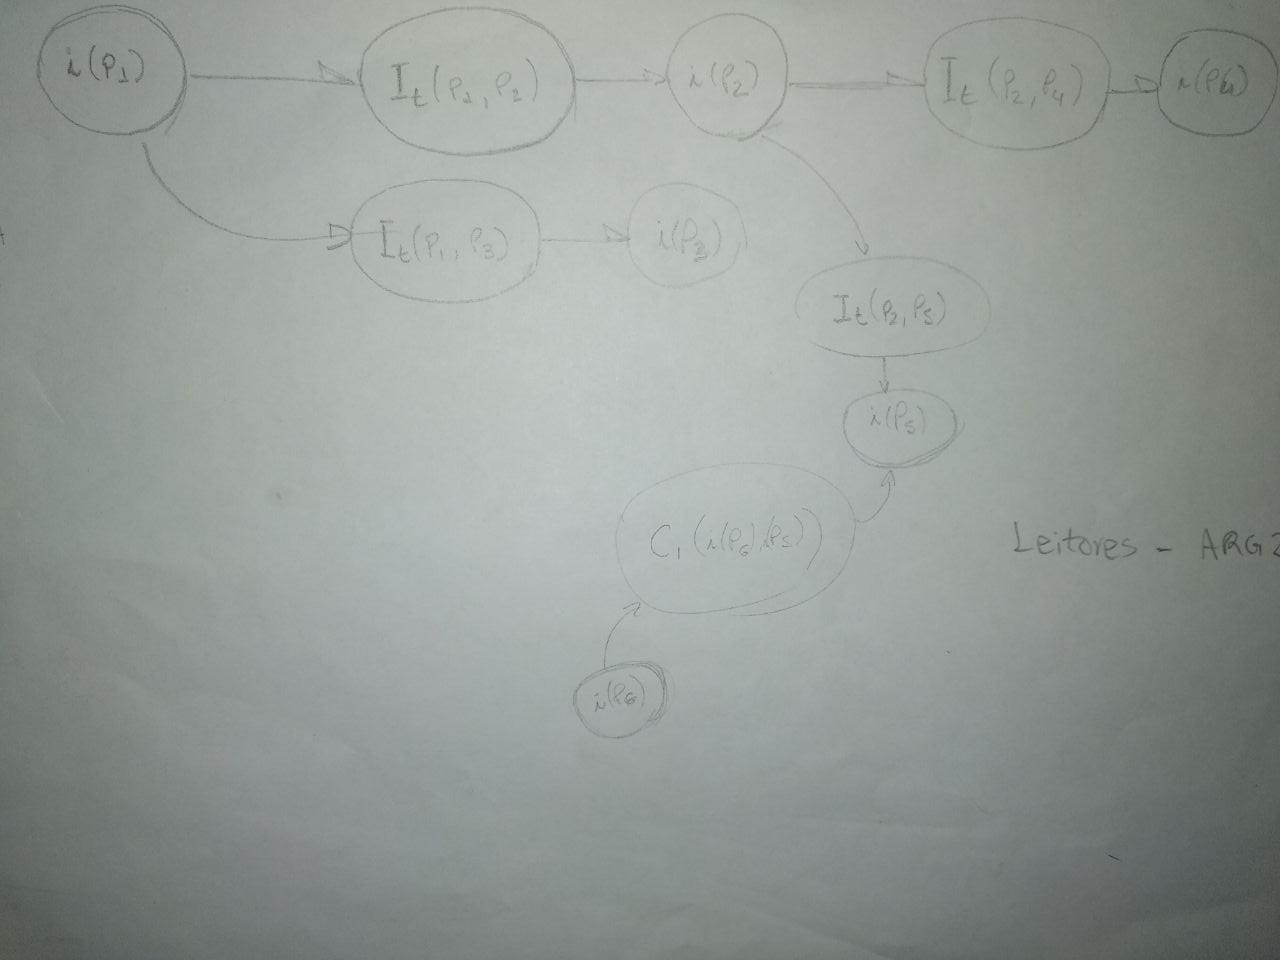 i(P₁)
I_t(P₁, P₂)
i(P₂)
I_t(P₂, P₄)
i(P₄)
I_t(P₁, P₃)
i(P₃)
I_t(P₂, P₅)
i(P₅)
C₁(i(P₆), i(P₅))
Leitores - ARG2
i(P₆)